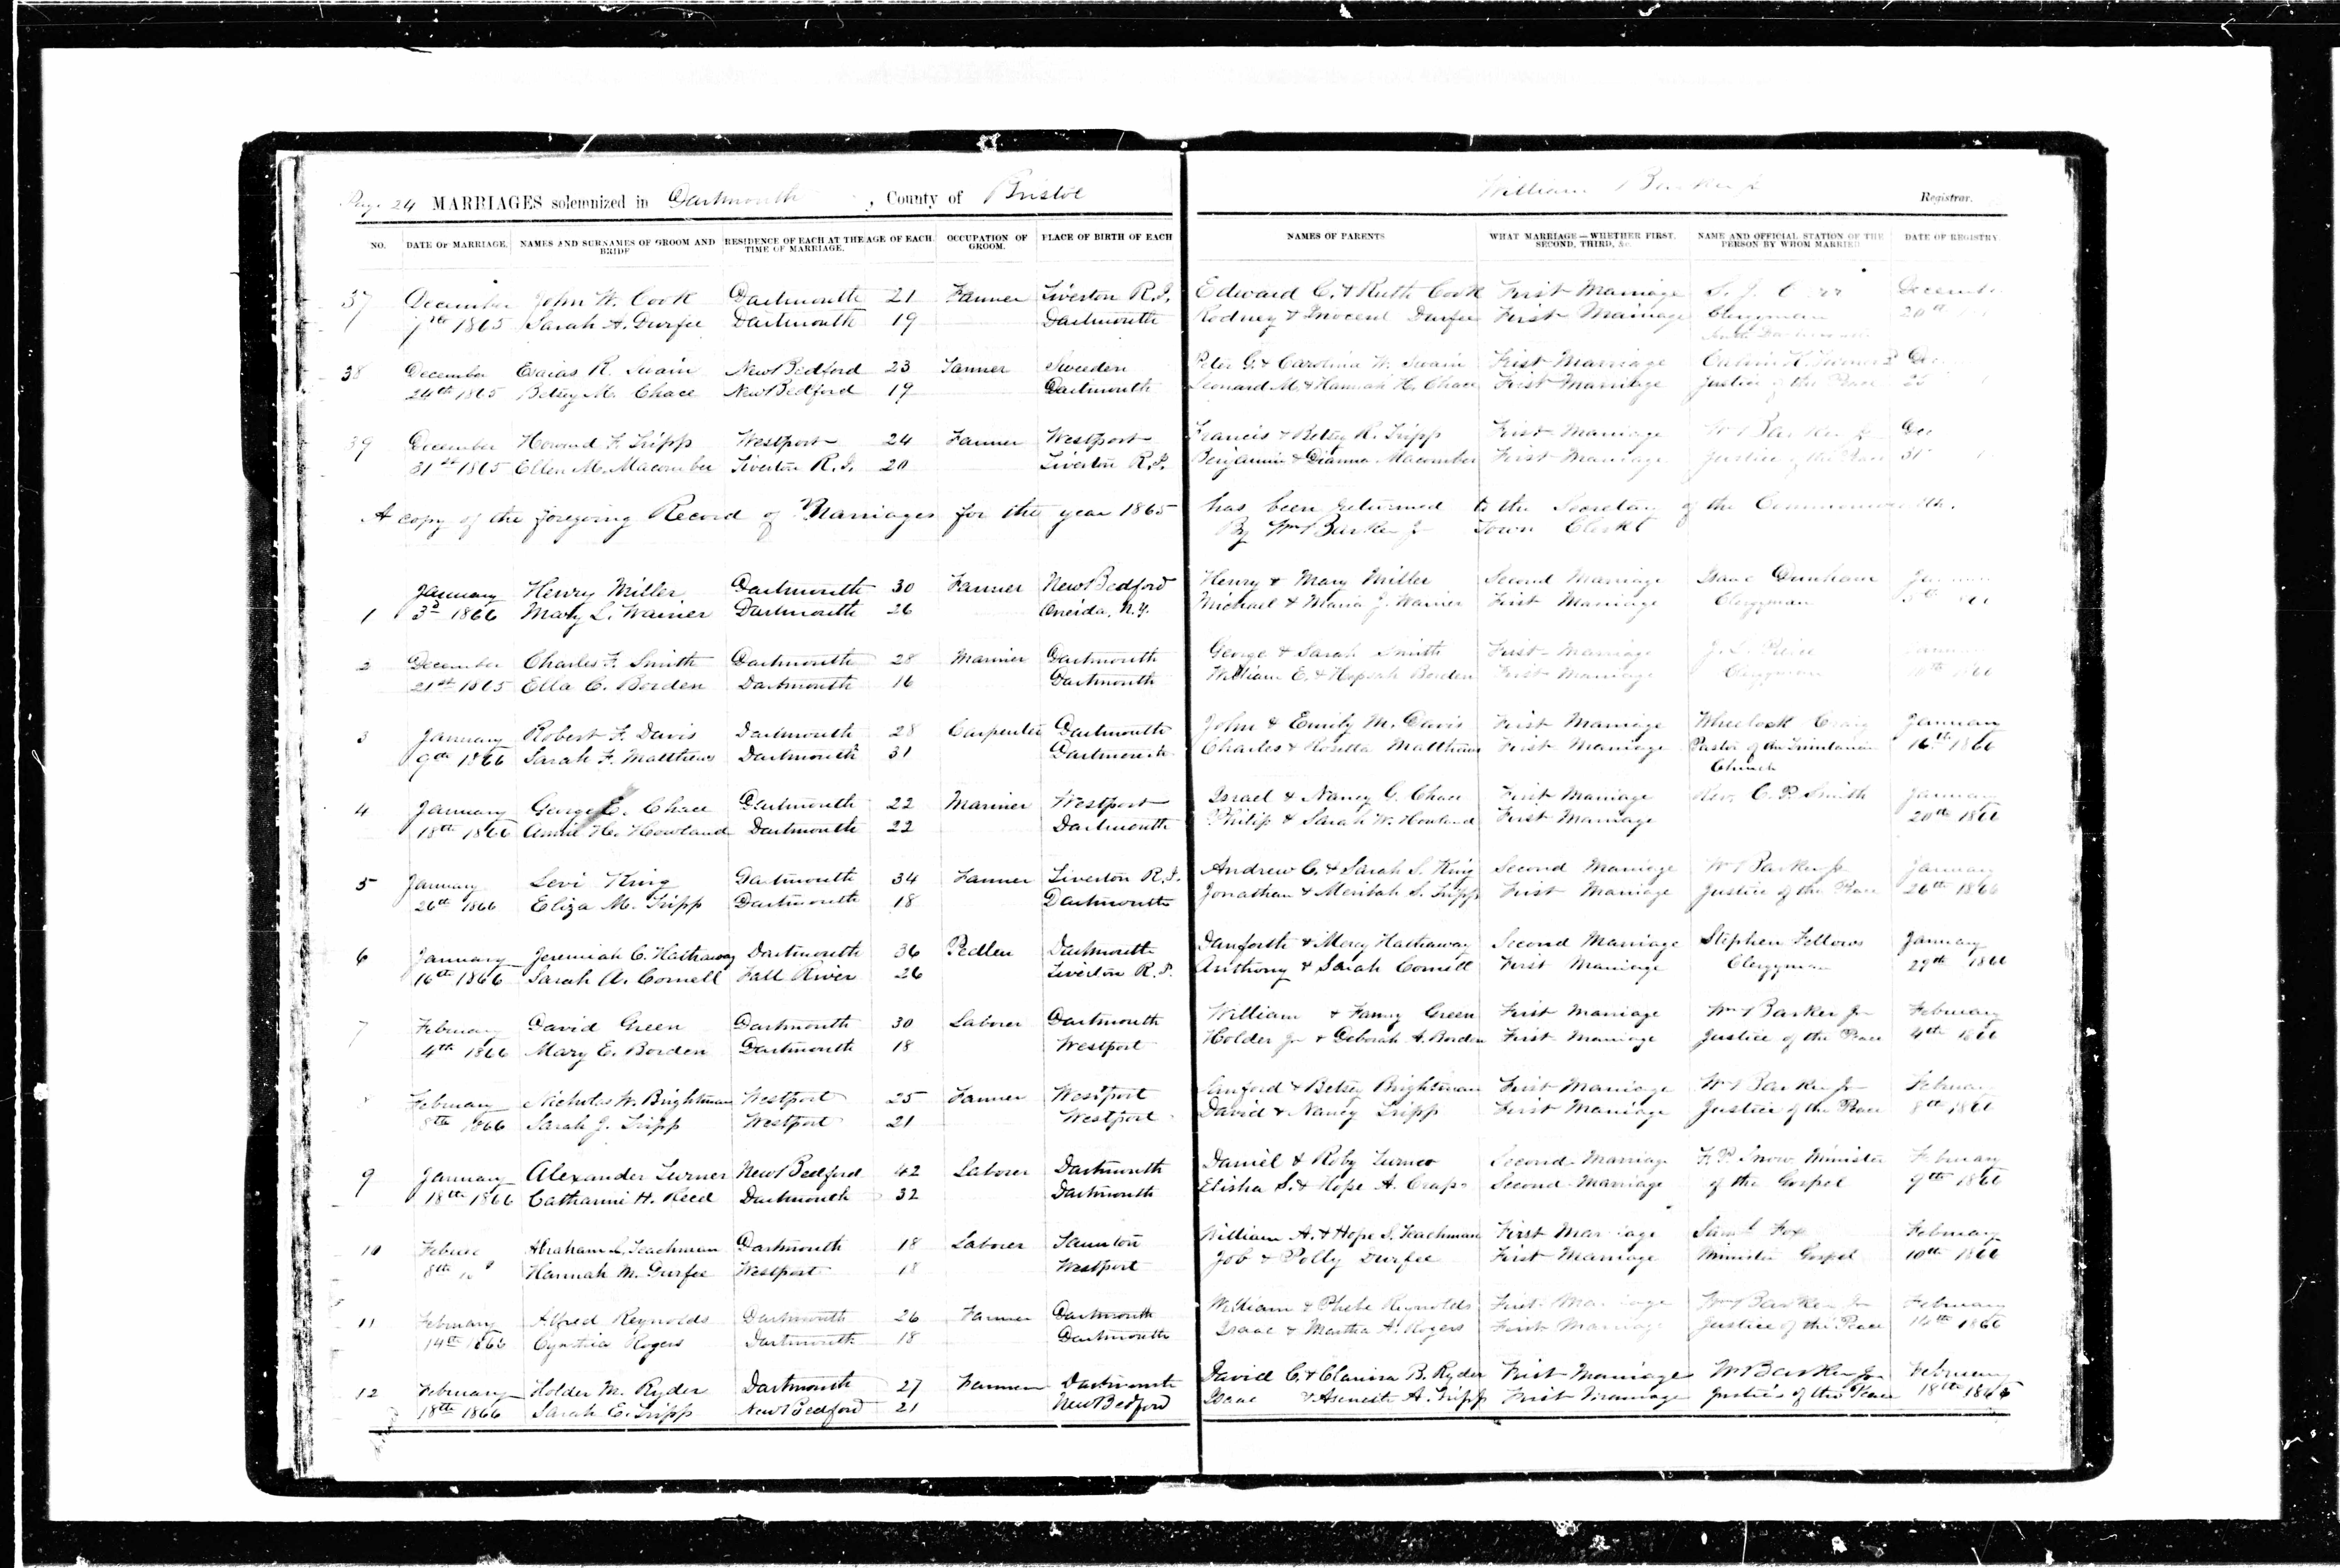 Page 24 MARRIAGES solemnized in Dartmouth, County of Bristol William Barker Jr Registrar.
NO. DATE OF MARRIAGE. NAMES AND SURNAMES OF GROOM AND BRIDE RESIDENCE OF EACH AT THE TIME OF MARRIAGE. AGE OF EACH. OCCUPATION OF GROOM. PLACE OF BIRTH OF EACH NAMES OF PARENTS WHAT MARRIAGE—WHETHER FIRST, SECOND, THIRD, &c. NAME AND OFFICIAL STATION OF THE PERSON BY WHOM MARRIED DATE OF REGISTRY.
37 December John W. Cook Dartmouth 21 Farmer Tiverton R.I. Edward C. & Ruth Cook First Marriage December
7th 1865 Sarah A. Durfee Dartmouth 19 Dartmouth Rodney & Inocent Durfee First Marriage Clergyman 20th
38 December Esaias R. Swain New Bedford 23 Farmer Sweeden Peter G. & Carolina W. Swain First Marriage Dec
24th 1865 Betsey M. Chace New Bedford 19 Dartmouth Leonard M. & Hannah H. Chace First Marriage Justice of the Peace 25
39 December Howard F. Tripp Westport 24 Farmer Westport Francis & Betsey R. Tripp First Marriage Wm Barker Jr Dec
31st 1865 Ellen M. Macomber Tiverton R.I. 20 Tiverton R.I. Benjamin & Dianna Macomber First Marriage Justice of the Peace 31
A copy of the foregoing Record of Marriages for the year 1865 has been returned to the Secretary of the Commonwealth.
By Wm Barker Jr Town Clerk
January Henry Miller Dartmouth 30 Farmer New Bedford Henry & Mary Miller Second Marriage Isaac Dunham
1 3d 1866 Mary L. Wainer Dartmouth 26 Oneida, N.Y. Michael & Maria J. Wainer First Marriage Clergyman
2 December Charles F. Smith Dartmouth 28 Mariner Dartmouth George & Sarah Smith First Marriage
21st 1865 Ella C. Borden Dartmouth 16 Dartmouth William E. & Hepsah Borden First Marriage Clergyman 1866
3 January Robert F. Davis Dartmouth 28 Carpenter Dartmouth John & Emily M. Davis First Marriage Wheelock Craig January
9th 1866 Sarah F. Matthews Dartmouth 31 Dartmouth Charles & Rosetta Matthews First Marriage Pastor of the Trinitarian 16th 1866
Church
4 January George E. Chace Dartmouth 22 Mariner Westport Israel & Nancy G. Chace First Marriage Rev. C. P. Smith January
18th 1866 Annie H. Howland Dartmouth 22 Dartmouth Philip & Sarah W. Howland First Marriage 20th 1866
5 January Levi King Dartmouth 34 Farmer Tiverton R.I. Andrew C. & Sarah S. King Second Marriage Wm Barker Jr January
26th 1866 Eliza M. Tripp Dartmouth 18 Dartmouth Jonathan & Meribah S. Tripp First Marriage Justice of the Peace 26th 1866
6 January Jeremiah C. Hathaway Dartmouth 36 Pedler Dartmouth Danforth & Mercy Hathaway Second Marriage Stephen Fellows January
16th 1866 Sarah A. Cornell Fall River 26 Tiverton R.I. Anthony & Sarah Cornell First Marriage Clergyman 29th 1866
7 February David Green Dartmouth 30 Laborer Dartmouth William & Fanny Green First Marriage Wm Barker Jr February
4th 1866 Mary E. Borden Dartmouth 18 Westport Holder Jr & Deborah A. Borden First Marriage Justice of the Peace 4th 1866
February Nicholas W. Brightman Westport 25 Farmer Westport Sanford & Betsey Brightman First Marriage Wm Barker Jr February
8th 1866 Sarah J. Tripp Westport 21 Westport David & Nancy Tripp First Marriage Justice of the Peace 8th 1866
9 January Alexander Turner New Bedford 42 Laborer Dartmouth Daniel & Roby Turner Second Marriage F. P. Snow Minister February
18th 1866 Catharine H. Reed Dartmouth 32 Dartmouth Elisha S. & Hope A. Crapo Second Marriage of the Gospel 9th 1866
10 Abraham L. Teachman Dartmouth 18 Laborer Taunton William A. & Hope S. Teachman First Marriage Saml Fox February
8th Hannah M. Durfee Westport 18 Westport Job & Polly Durfee First Marriage Minister Gospel 10th 1866
11 February Alfred Reynolds Dartmouth 26 Farmer Dartmouth William & Phebe Reynolds First Marriage Wm Barker Jr February
14th 1866 Cynthia Rogers Dartmouth 18 Dartmouth Isaac & Martha A. Rogers First Marriage Justice of the Peace 14th 1866
12 February Holder M. Ryder Dartmouth 27 Farmer Dartmouth David C. & Clarissa B. Ryder First Marriage Wm Barker Jr February
18th 1866 Sarah E. Tripp New Bedford 21 New Bedford Isaac & Aseneth A. Tripp First Marriage Justice of the Peace 18th 1866